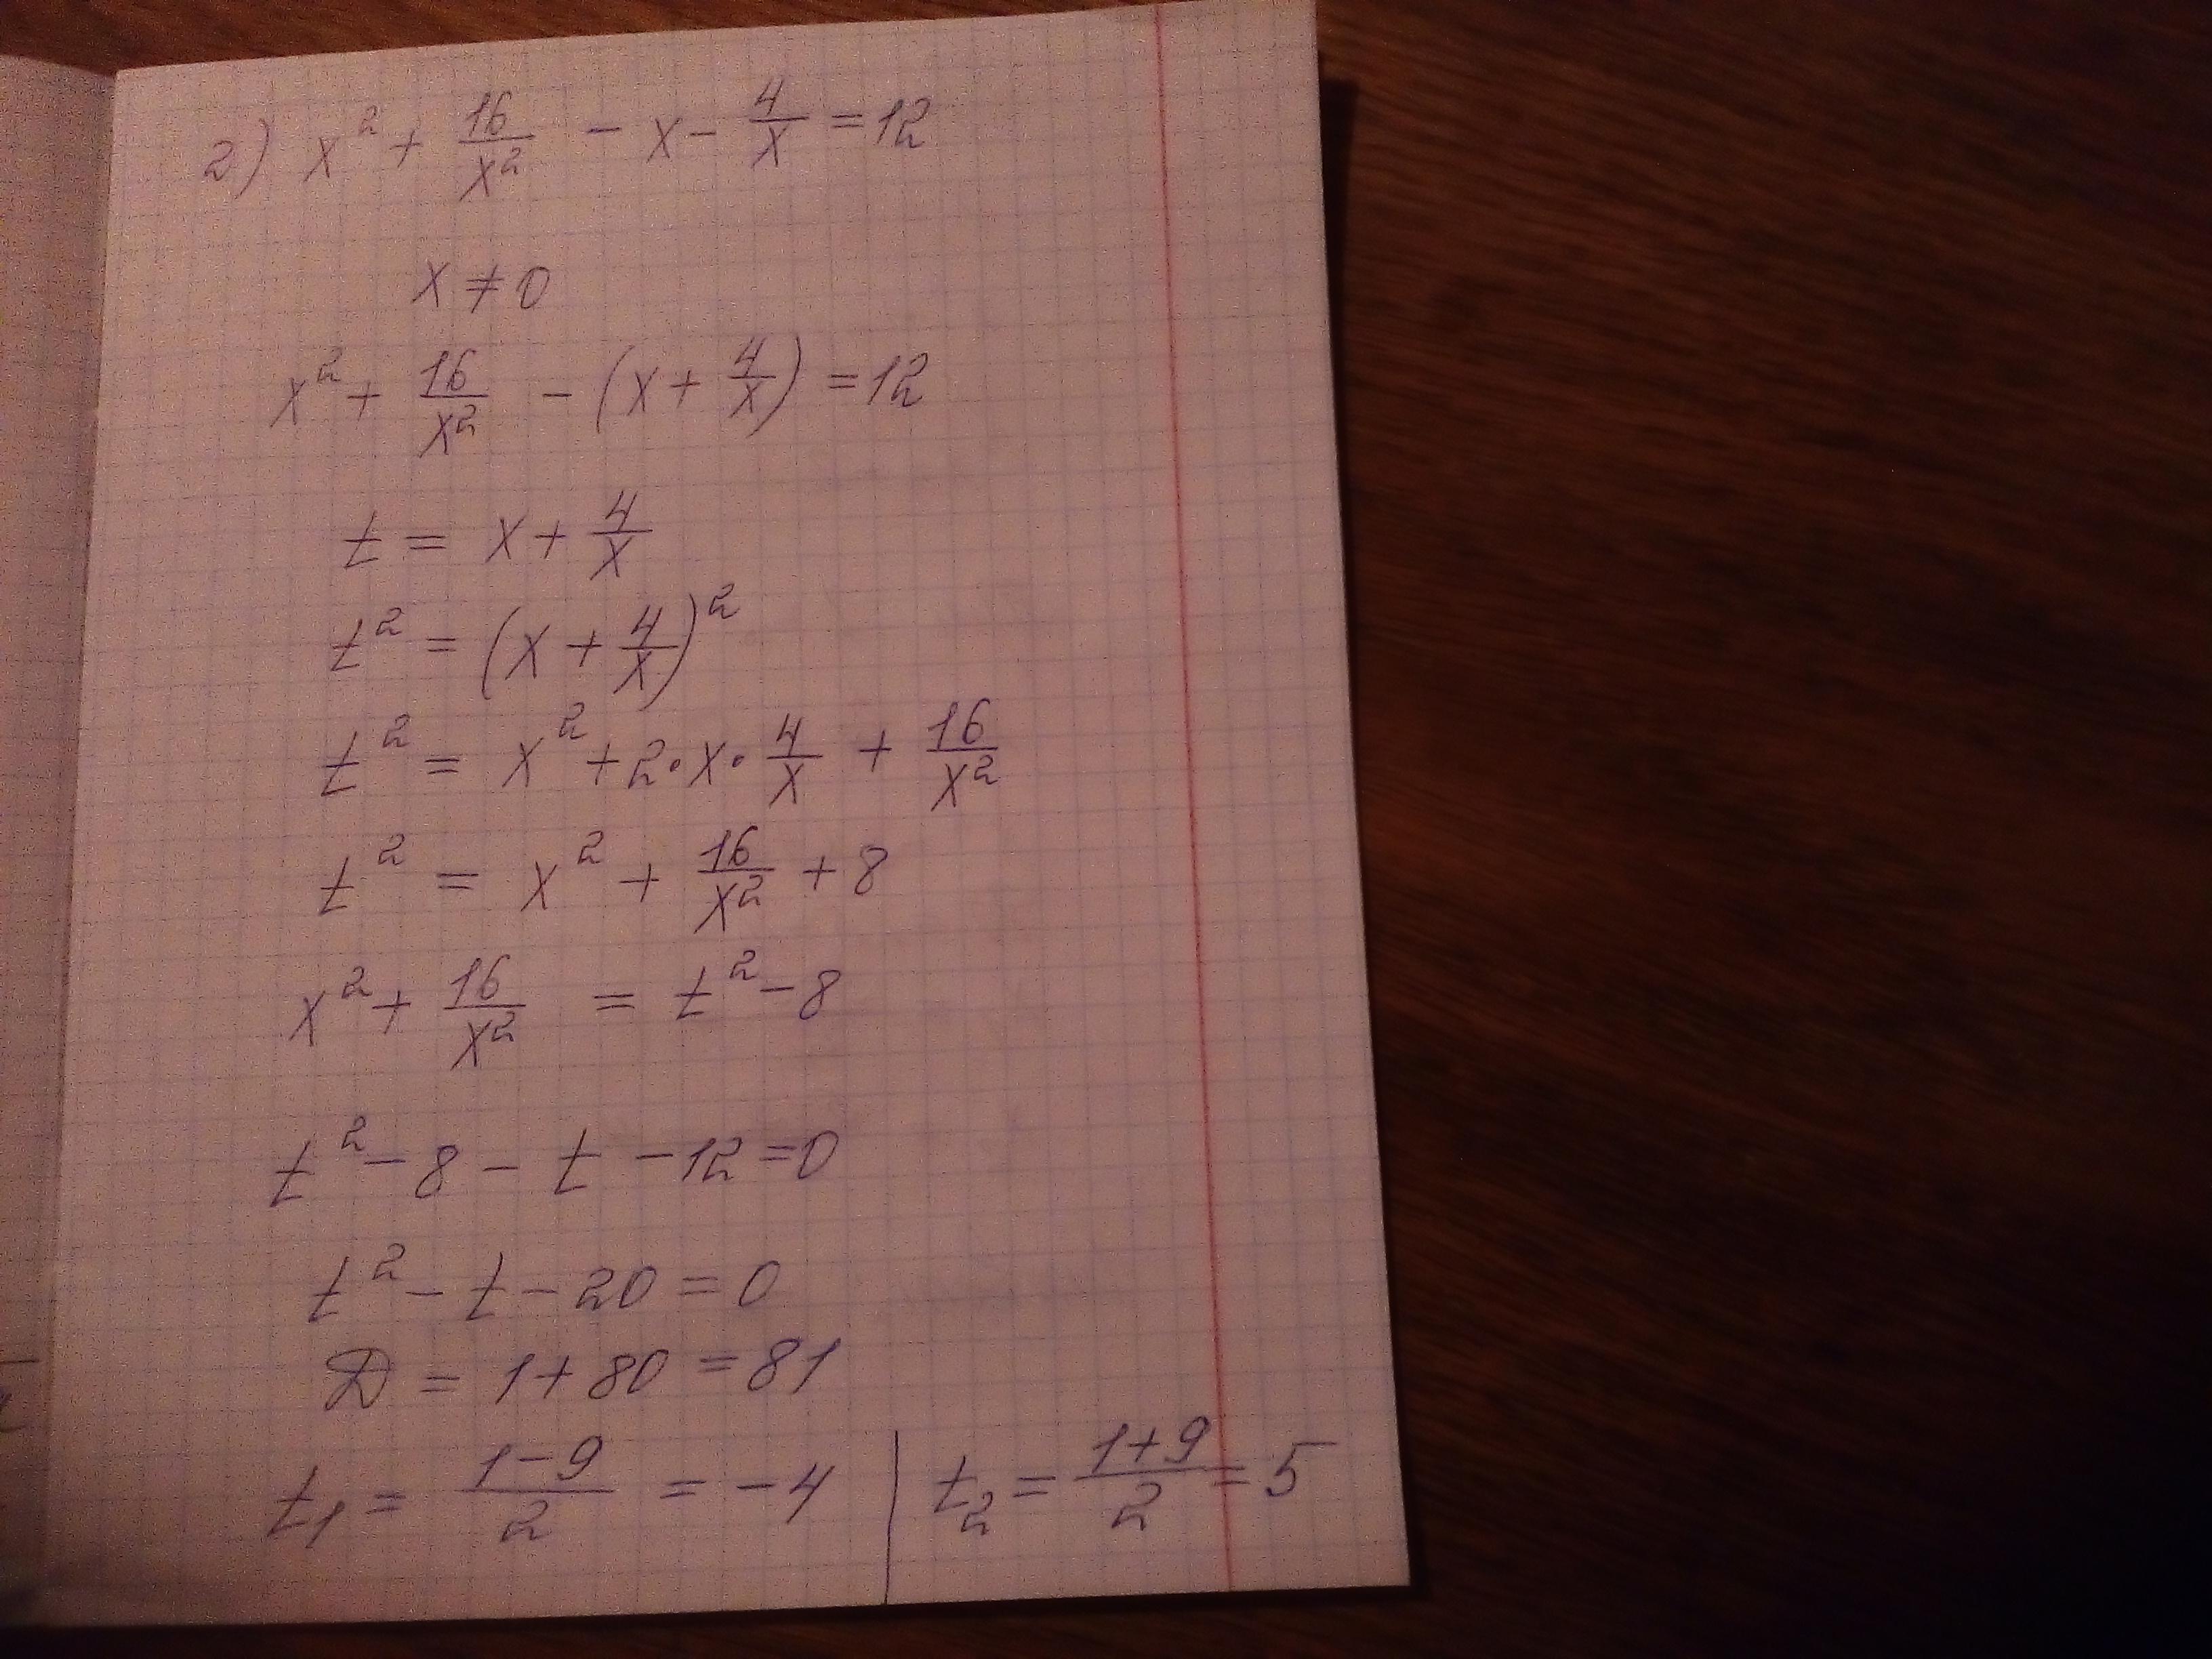 2) x² + 16/x² - x - 4/x = 12
x ≠ 0
x² + 16/x² - (x + 4/x) = 12
t = x + 4/x
t² = (x + 4/x)²
t² = x² + 2·x·4/x + 16/x²
t² = x² + 16/x² + 8
x² + 16/x² = t² - 8
t² - 8 - t - 12 = 0
t² - t - 20 = 0
D = 1 + 80 = 81
t₁ = (1 - 9)/2 = -4 | t₂ = (1 + 9)/2 = 5